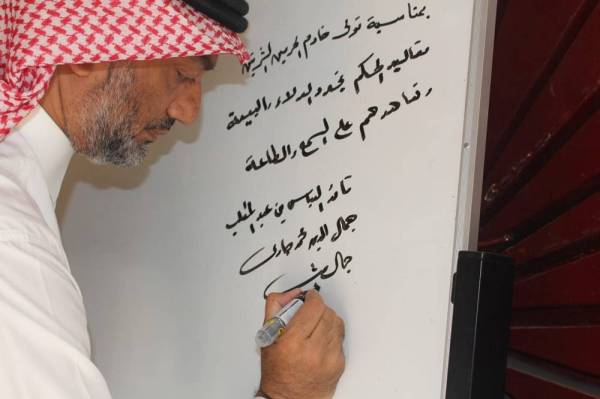 بمناسبة تولى خادم الحرمين الشريفين
مقاليد الحكم نجدد الولاء والبيعة
ونعاهدهم على السمع والطاعة
العباس بن عبد المطلب
جمال الدين محمد